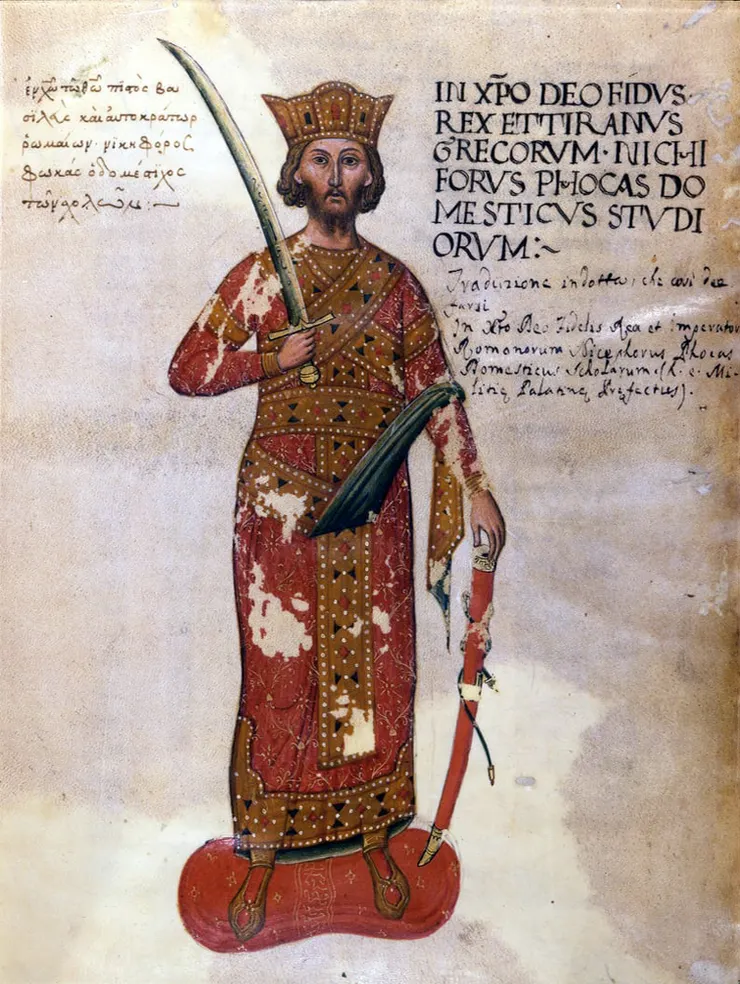 ἐν χῶ τῶ θῶ πιστὸς βα
σιλεὺς καὶ αὐτοκράτωρ
ῥωμαίων· νικηφόρος
φωκὰς ὁ δομέστιχος
τῶν σχολῶν :~
IN XP̄O DEO FIDVS·
REX ET TIRANVS
GRECORVM· NICHI
FORVS PHOCAS DO
MESTICVS STVDI
ORVM:~
Traduzione indotta, che così dee
farsi
In Xto Deo Fidelis Rex et Imperator
Romanorum Nicephorus Phocas
Domesticus Scholarum (h. e. Mi-
litiæ Palatinæ Præfectus).